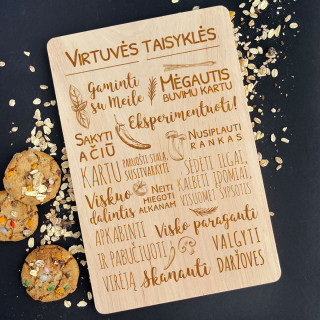 VIRTUVĖS TAISYKLĖS
Gaminti
su Meile
MĖGAUTIS
BUVIMU KARTU
Eksperimentuoti!
SAKYTI
AČIŪ
NUSIPLAUTI
RANKAS
KARTU PARUOŠTI STALĄ,
SUSITVARKYTI
SĖDĖTI ILGAI,
KALBĖTI ĮDOMIAI,
VISUOMET ŠYPSOTIS
Viskuo
dalintis
NEITI
MIEGOTI
ALKANAM
APKABINTI
IR PABUČIUOTI
VIRĖJĄ
Visko paragauti
Skanauti
VALGYTI
DARŽOVES